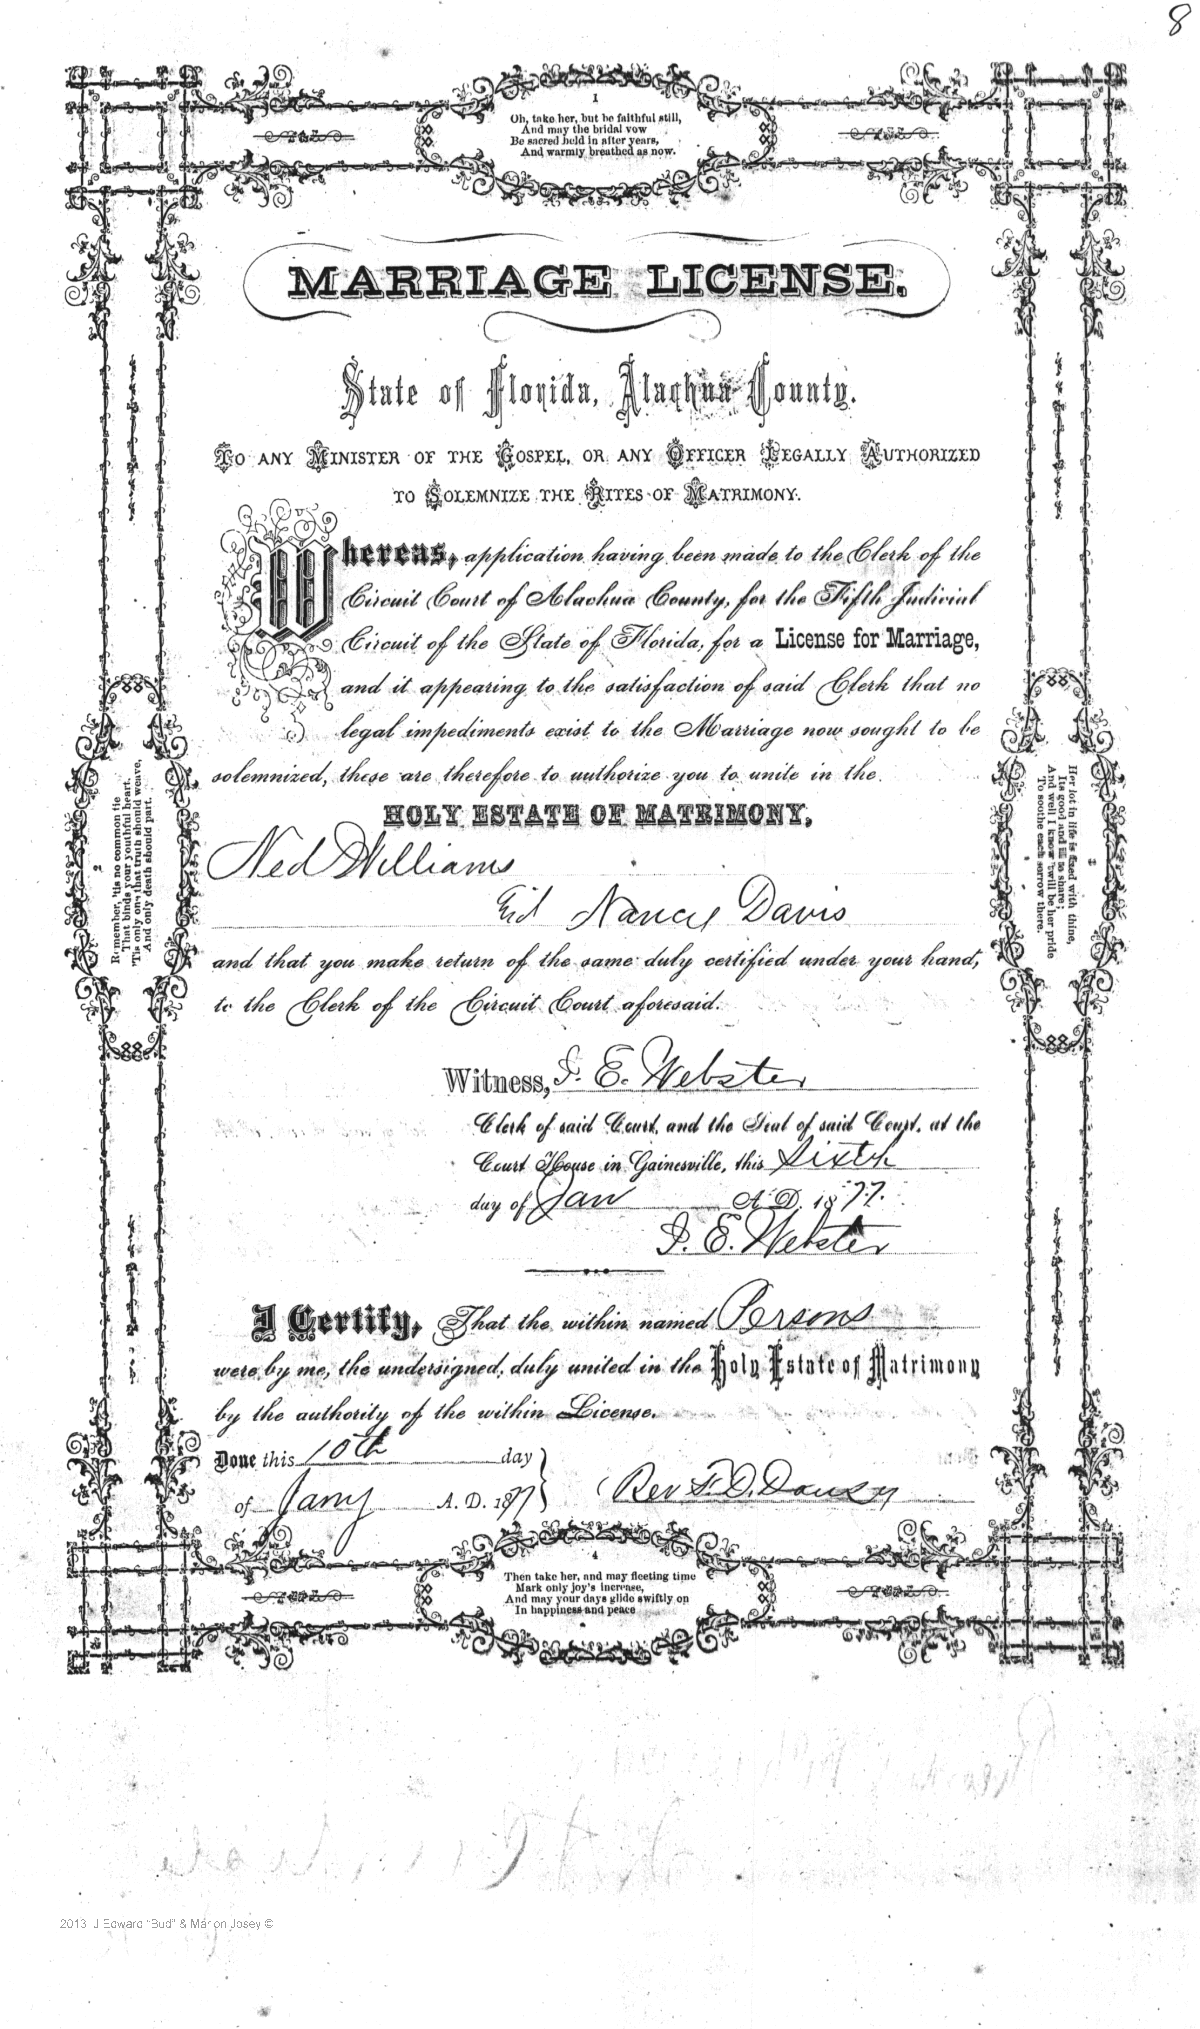 8
1
Oh, take her, but be faithful still,
And may the bridal vow
Be sacred held in after years,
And warmly breathed as now.
MARRIAGE LICENSE.
State of Florida, Alachua County.
TO ANY MINISTER OF THE GOSPEL, OR ANY OFFICER LEGALLY AUTHORIZED
TO SOLEMNIZE THE RITES OF MATRIMONY.
Whereas, application having been made to the Clerk of the
Circuit Court of Alachua County, for the Fifth Judicial
Circuit of the State of Florida, for a License for Marriage,
and it appearing to the satisfaction of said Clerk that no
legal impediments exist to the Marriage now sought to be
solemnized, these are therefore to authorize you to unite in the
HOLY ESTATE OF MATRIMONY,
Ned Williams
Nancy Davis
and that you make return of the same duly certified under your hand,
to the Clerk of the Circuit Court aforesaid.
2
Remember, 'tis no common tie
That binds your youthful heart,
'Tis only one that truth should weave,
And only death should part.
3
Her lot in life is fixed with thine,
Its good and ill to share;
And well I know 'twill be her pride
To soothe each sorrow there.
Witness, J. E. Webster
Clerk of said Court, and the Seal of said Court, at the
Court House in Gainesville, this Sixth
day of Jan A. D. 1877.
J. E. Webster
I Certify, That the within named Persons
were by me, the undersigned, duly united in the Holy Estate of Matrimony
by the authority of the within License.
Done this 10th day
of Jany A. D. 1877
Rev F. D.
4
Then take her, and may fleeting time
Mark only joy's increase,
And may your days glide swiftly on
In happiness and peace
2013 J Edward "Bud" & Marion Josey ©